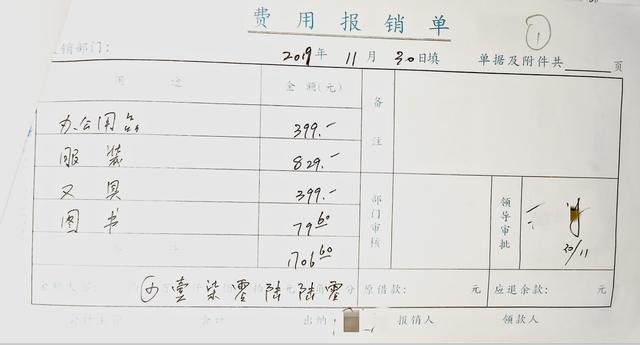 费用报销单
①
销部门: 2019年 11月 30日填 单据及附件共 页
用途 金额(元) 备注
办公用品 399.-
服装 829.-
文具 399.-
图书 79.60
合计 1706.60
部门审核 领导审批 30/11
壹柒零陆陆零 原借款: 元 应退余款: 元
会计主管 会计 出纳 报销人 领款人